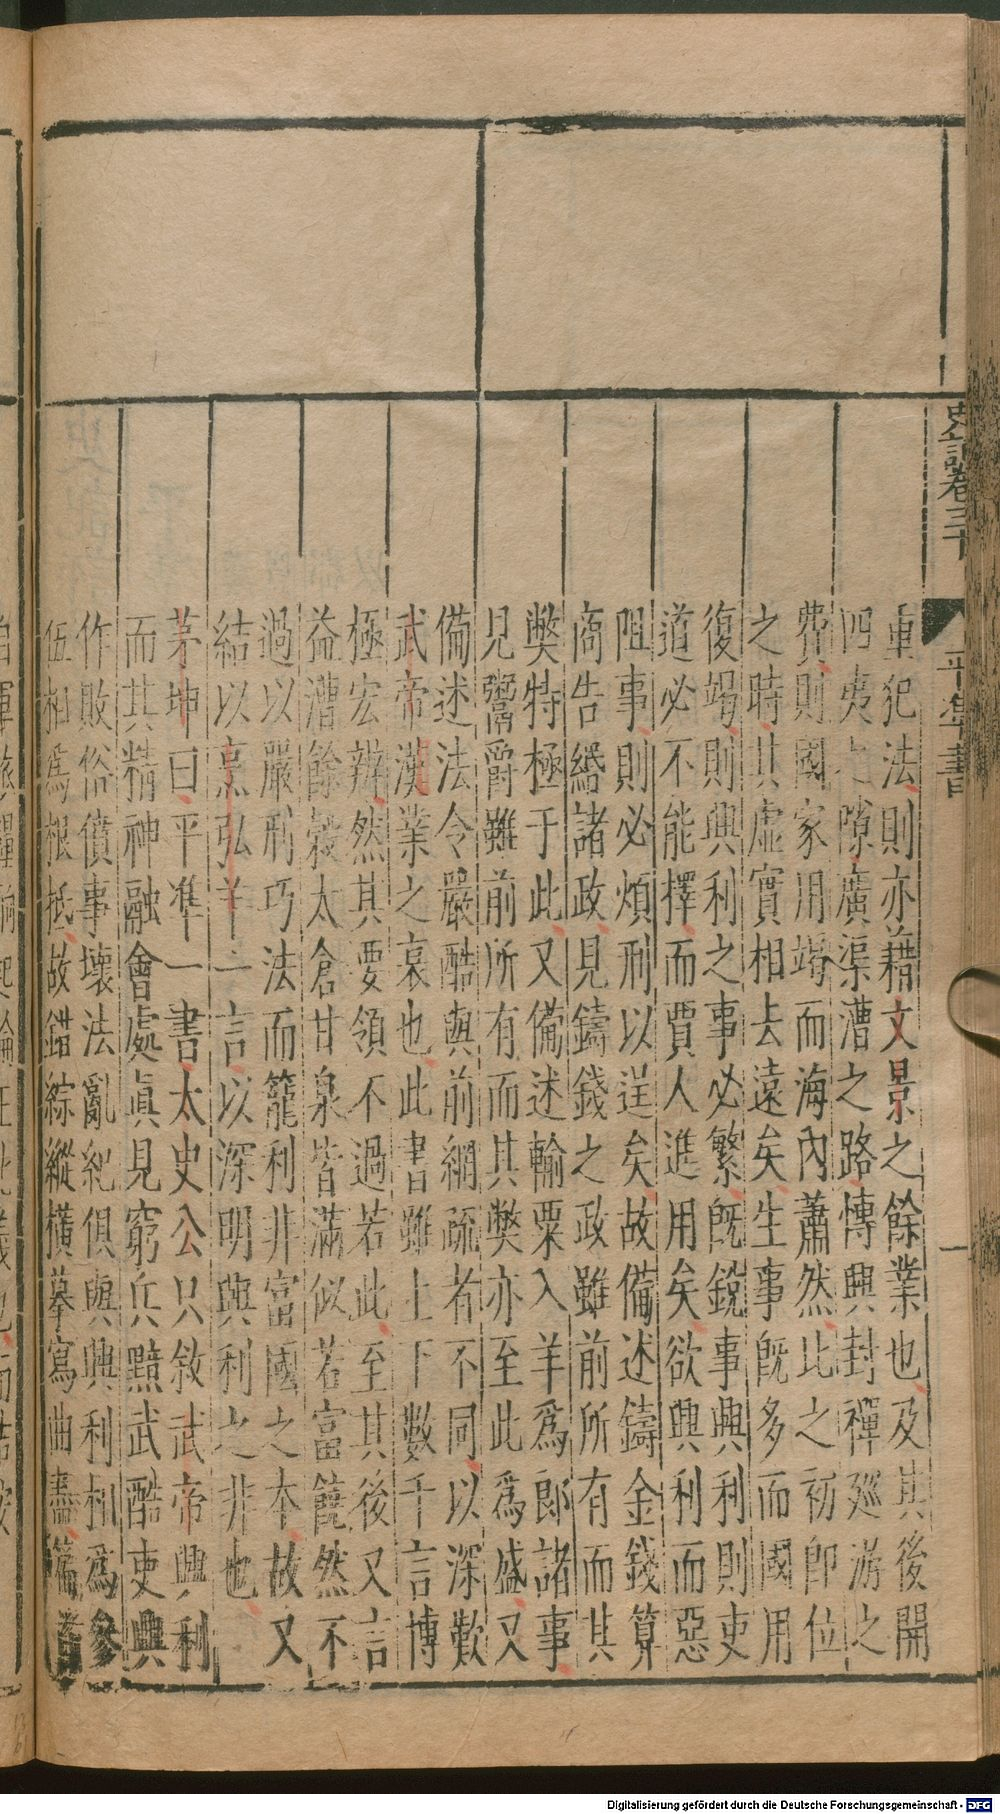 史記卷三十
平準書
一
重犯法則亦藉文景之餘業也及其後開
四夷之隙廣渠漕之路慱興封禪廵游之
費則國家用竭而海內蕭然比之初卽位
之時其虛實相去遠矣生事旣多而國用
復竭則興利之事必繁旣銳事興利則吏
道必不能擇而賈人進用矣欲興利而惡
阻事則必煩刑以逞矣故備述鑄金錢算
商告緡諸政見鑄錢之政雖前所有而其
獘特極于此又備述輸粟入羊爲郎諸事
見鬻爵雖前所有而其獘亦至此爲盛又
備述法令嚴酷與前綱疏者不同以深歎
武帝漢業之衰也此書雖上下數千言博
極宏辨然其要領不過若此至其後又言
益漕餘穀太倉甘泉皆滿似若富饒然不
過以嚴刑巧法而籠利非富國之本故又
結以烹弘羊一言以深明興利之非也
茅坤曰平準一書太史公只敘武帝興利
而其精神融會處眞見窮兵黷武酷吏興
作敗俗僨事壞法亂紀俱與興利相爲參
伍相爲根抵故錯綜縱橫摹寫曲盡篇首
Digitalisierung gefördert durch die Deutsche Forschungsgemeinschaft - DFG